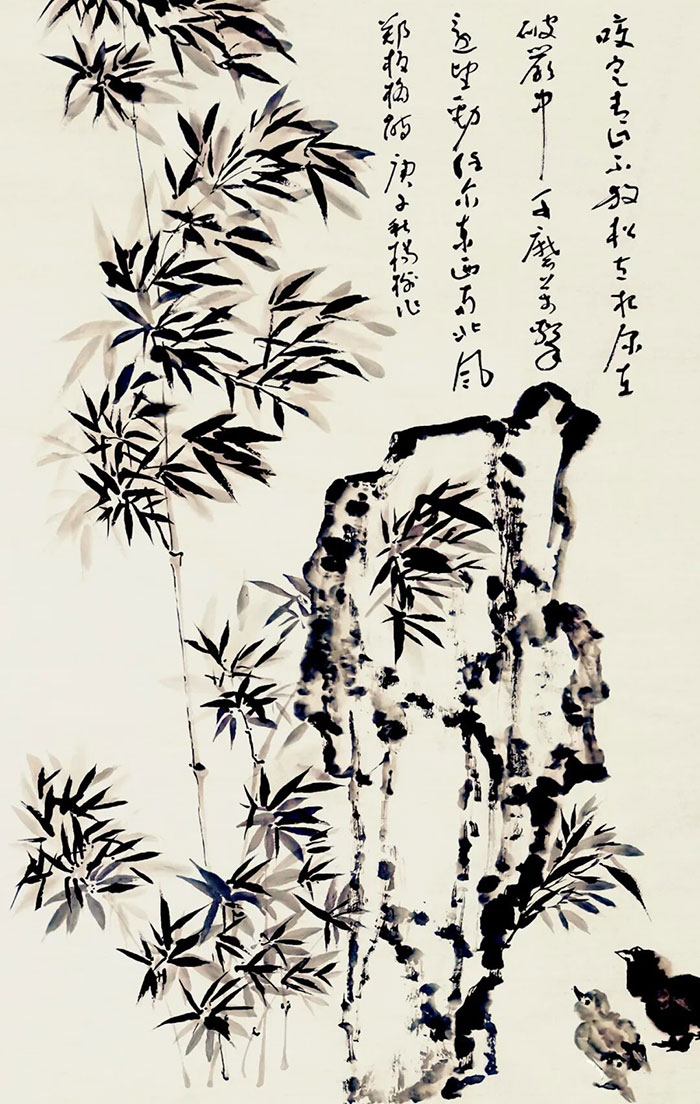 咬定青山不放松立根原在
破岩中千磨万擊
还坚劲任尔东西南北风
郑板桥诗庚子秋楊作